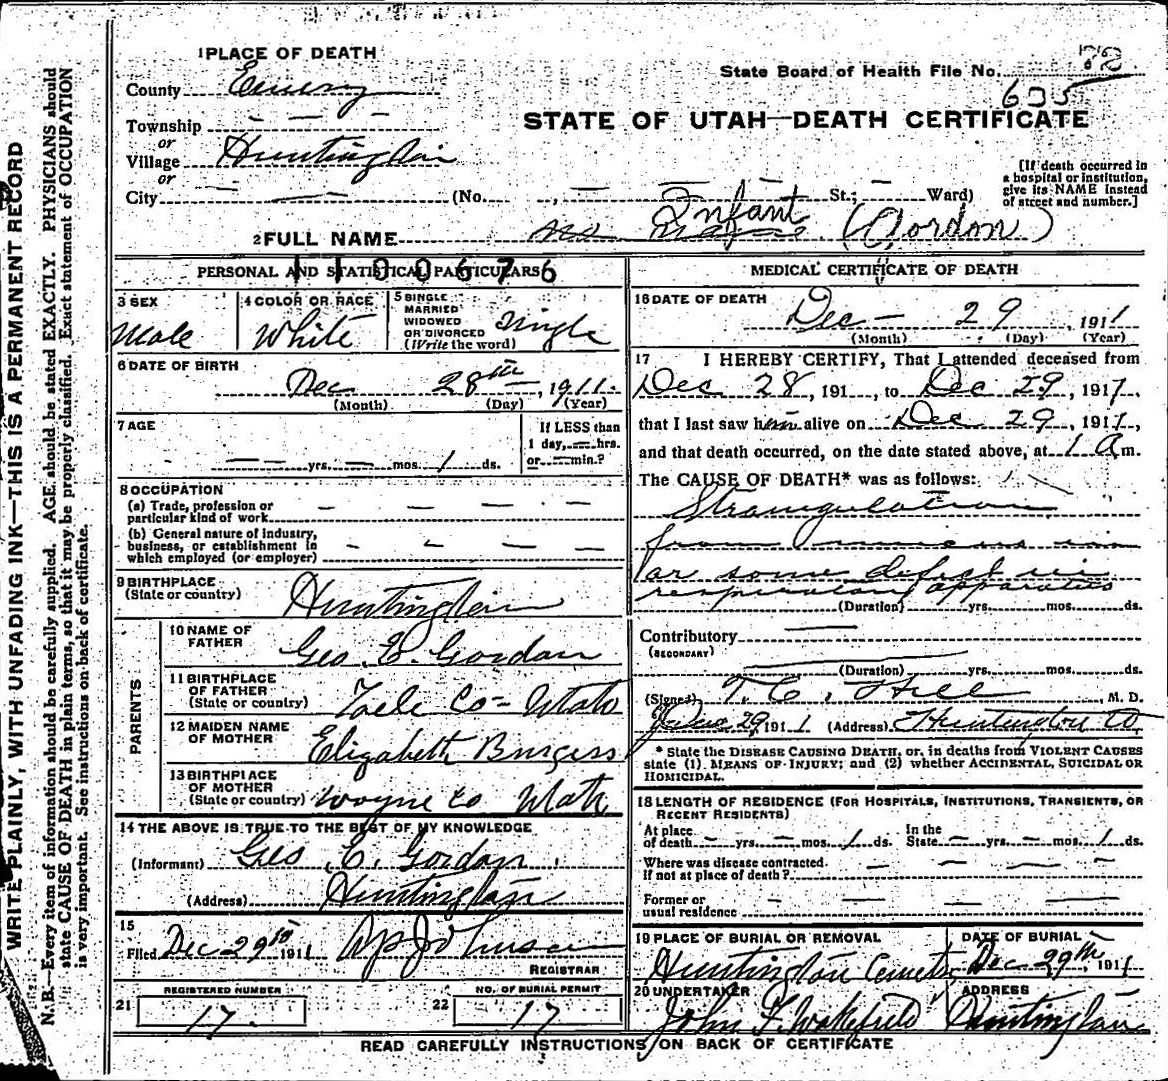 1 PLACE OF DEATH
County Emery
Township — — —
or
Village Huntington
or
City — — (No. , — — St; — Ward)
State Board of Health File No. 78
635
STATE OF UTAH—DEATH CERTIFICATE
[If death occurred in
a hospital or institution,
give its NAME instead
of street and number.]
2 FULL NAME Infant (Gordon)
PERSONAL AND STATISTICAL PARTICULARS
1100676
3 SEX
Male
4 COLOR OR RACE
White
5 SINGLE
MARRIED
WIDOWED
OR DIVORCED
(Write the word)
Single
6 DATE OF BIRTH
Dec 28th — , 1911.
(Month) (Day) (Year)
7 AGE
— yrs. — mos. 1 ds.
If LESS than
1 day, — hrs.
or — min.?
8 OCCUPATION
(a) Trade, profession or
particular kind of work — — — —
(b) General nature of industry,
business, or establishment in
which employed (or employer) — — — —
9 BIRTHPLACE
(State or country)
Huntington
PARENTS
10 NAME OF
FATHER
Geo. E. Gordon
11 BIRTHPLACE
OF FATHER
(State or country)
Co– Utah
12 MAIDEN NAME
OF MOTHER
Elizabeth Burgess
13 BIRTHPLACE
OF MOTHER
(State or country)
Wayne Co Utah
14 THE ABOVE IS TRUE TO THE BEST OF MY KNOWLEDGE
(Informant) Geo E. Gordon
(Address) Huntington
15
Filed Dec 29th 1911
REGISTRAR
21
REGISTERED NUMBER
17.
22
NO. OF BURIAL PERMIT
17
MEDICAL CERTIFICATE OF DEATH
16 DATE OF DEATH
Dec — 29 , 1911
(Month) (Day) (Year)
17 I HEREBY CERTIFY, That I attended deceased from
Dec 28, 191 , to Dec 29, 1911,
that I last saw him alive on Dec 29, 1911,
and that death occurred, on the date stated above, at 1 A m.
The CAUSE OF DEATH* was as follows:
Strangulation
from mucus in
or some defect in
respiratory apparatus
(Duration) yrs. mos. ds.
Contributory —
(SECONDARY)
(Duration) yrs. mos. ds.
(Signed) T. C. Hill , M. D.
Dec 29, 1911 (Address) Huntington
* State the DISEASE CAUSING DEATH, or, in deaths from VIOLENT CAUSES
state (1) MEANS OF INJURY; and (2) whether ACCIDENTAL, SUICIDAL OR
HOMICIDAL.
18 LENGTH OF RESIDENCE (FOR HOSPITALS, INSTITUTIONS, TRANSIENTS, OR
RECENT RESIDENTS)
At place
of death — yrs. — mos. 1 ds.
In the
State — yrs. — mos. 1 ds.
Where was disease contracted.
If not at place of death? — — — —
Former or
usual residence — — — —
19 PLACE OF BURIAL OR REMOVAL
Huntington
DATE OF BURIAL
Dec 29th, 1911
20 UNDERTAKER
John F. Wakefield
ADDRESS
Huntington
READ CAREFULLY INSTRUCTIONS ON BACK OF CERTIFICATE
WRITE PLAINLY, WITH UNFADING INK—THIS IS A PERMANENT RECORD
N. B.—Every item of information should be carefully supplied. AGE should be stated EXACTLY. PHYSICIANS should
state CAUSE OF DEATH in plain terms, so that it may be properly classified. Exact statement of OCCUPATION
is very important. See instructions on back of certificate.